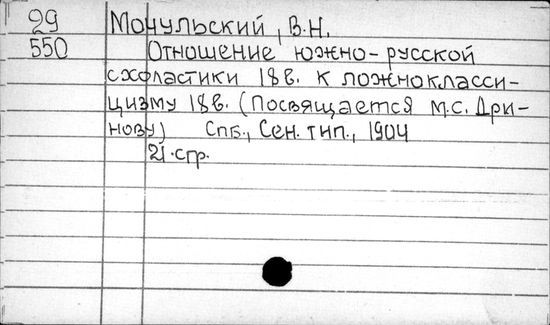 29 Мочульский, В.Н.
550 Отношение южно-русской
схоластики 18в. к ложнокласси-
цизму 18в. (Посвящается М.С. Дри-
нову) Спб., Сен. тип., 1904
21.стр.